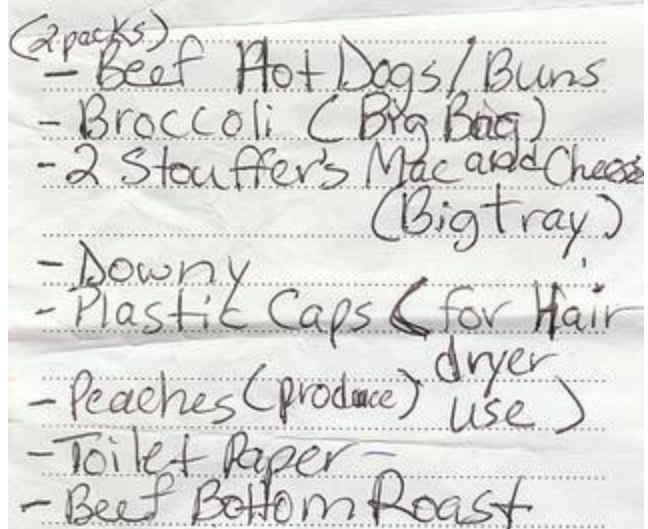 (2 packs)
- Beef Hot Dogs/Buns
- Broccoli (Big Bag)
- 2 Stouffer's Mac and Cheese
(Big tray)
- Downy
- Plastic Caps (for Hair
dryer
- Peaches (produce) use)
- Toilet Paper -
- Beef Bottom Roast